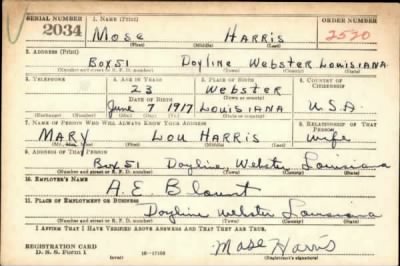 SERIAL NUMBER 1. NAME (Print) ORDER NUMBER
2034 MOSE HARRIS 2520
(First) (Middle) (Last)
2. ADDRESS (Print)
BOX 51 Doyline Webster LOUISIANA
(Number and street or R. F. D. number) (Town) (County) (State)
3. TELEPHONE 4. AGE IN YEARS 5. PLACE OF BIRTH 6. COUNTRY OF CITIZENSHIP
23 Webster
DATE OF BIRTH (Town or county)
June 7 1917 LOUISIANA U.S.A.
(Exchange) (Number) (Mo.) (Day) (Yr.) (State or country)
7. NAME OF PERSON WHO WILL ALWAYS KNOW YOUR ADDRESS 8. RELATIONSHIP OF THAT PERSON
MARY LOU HARRIS wife
(Mr., Mrs., Miss) (First) (Middle) (Last)
9. ADDRESS OF THAT PERSON
Box 51 Doyline, Webster Louisiana
(Number and street or R. F. D. number) (Town) (County) (State)
10. EMPLOYER'S NAME
A. E. Blount
11. PLACE OF EMPLOYMENT OR BUSINESS
Doyline Webster Louisiana
(Number and street or R. F. D. number) (Town) (County) (State)
I AFFIRM THAT I HAVE VERIFIED ABOVE ANSWERS AND THAT THEY ARE TRUE.
REGISTRATION CARD
D. S. S. Form 1 (over) Mose Harris
(Registrant's signature)